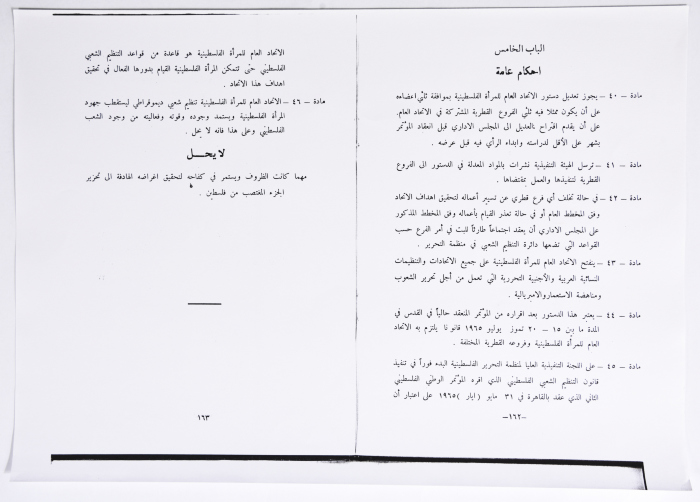 الباب الخامس
احكام عامة
مادة – ٤٠ – يجوز تعديل دستور الاتحاد العام للمرأة الفلسطينية بموافقة ثلثي اعضاءه
على أن يكون ممثلا فيه ثلثي الفروع القطرية المشتركة في الاتحاد العام.
على أن يقدم اقتراح بالتعديل الى المجلس الاداري قبل انعقاد المؤتمر
بشهر على الأقل لدراسته وابداء الرأي فيه قبل عرضه .
مادة – ٤١ – ترسل الهيئة التنفيذية نشرات بالمواد المعدلة في الدستور الى الفروع
القطرية لتنفيذها والعمل بمقتضاها .
مادة – ٤٢ – في حالة تخلف أي فرع قطري عن تسيير أعماله لتحقيق اهداف الاتحاد
وفق المخطط العام أو في حالة تعذر القيام بأعماله وفق المخطط المذكور
على المجلس الاداري أن يعقد اجتماعاً طارئاً للبت في أمر الفرع حسب
القواعد التي تضعها دائرة التنظيم الشعبي في منظمة التحرير .
مادة – ٤٣ – ينفتح الاتحاد العام للمرأة الفلسطينية على جميع الاتحادات والتنظيمات
النسائية العربية والأجنبية التحررية التي تعمل من أجل تحرير الشعوب
ومناهضة الاستعمار والامبريالية .
مادة – ٤٤ – يعتبر هذا الدستور بعد اقراره من المؤتمر المنعقد حالياً في القدس في
المدة ما بين ١٥ – ٢٠ تموز يوليو ١٩٦٥ قانونا يلتزم به الاتحاد
العام للمرأة الفلسطينية وفروعه القطرية المختلفة .
مادة – ٤٥ – على اللجنة التنفيذية العليا لمنظمة التحرير الفلسطينية البدء فوراً في تنفيذ
قانون التنظيم الشعبي الفلسطيني الذي اقره المؤتمر الوطني الفلسطيني
الثاني الذي عقد بالقاهرة في ٣١ مايو ( ايار ) ١٩٦٥ على اعتبار أن
–١٦٢–
الاتحاد العام للمرأة الفلسطينية هو قاعدة من قواعد التنظيم الشعبي
الفلسطيني حتى تتمكن المرأة الفلسطينية القيام بدورها الفعال في تحقيق
اهداف هذا الاتحاد .
مادة – ٤٦ – الاتحاد العام للمرأة الفلسطينية تنظيم شعبي ديموقراطي ليستقطب جهود
المرأة الفلسطينية ويستمد وجوده وقوته وفعاليته من وجود الشعب
الفلسطيني وعلى هذا فانه لا يحل .
لا يحــل
مهما كانت الظروف ويستمر في كفاحه لتحقيق اغراضه الهادفة الى تحرير
الجزء المغتصب من فلسطين .
١٦٣